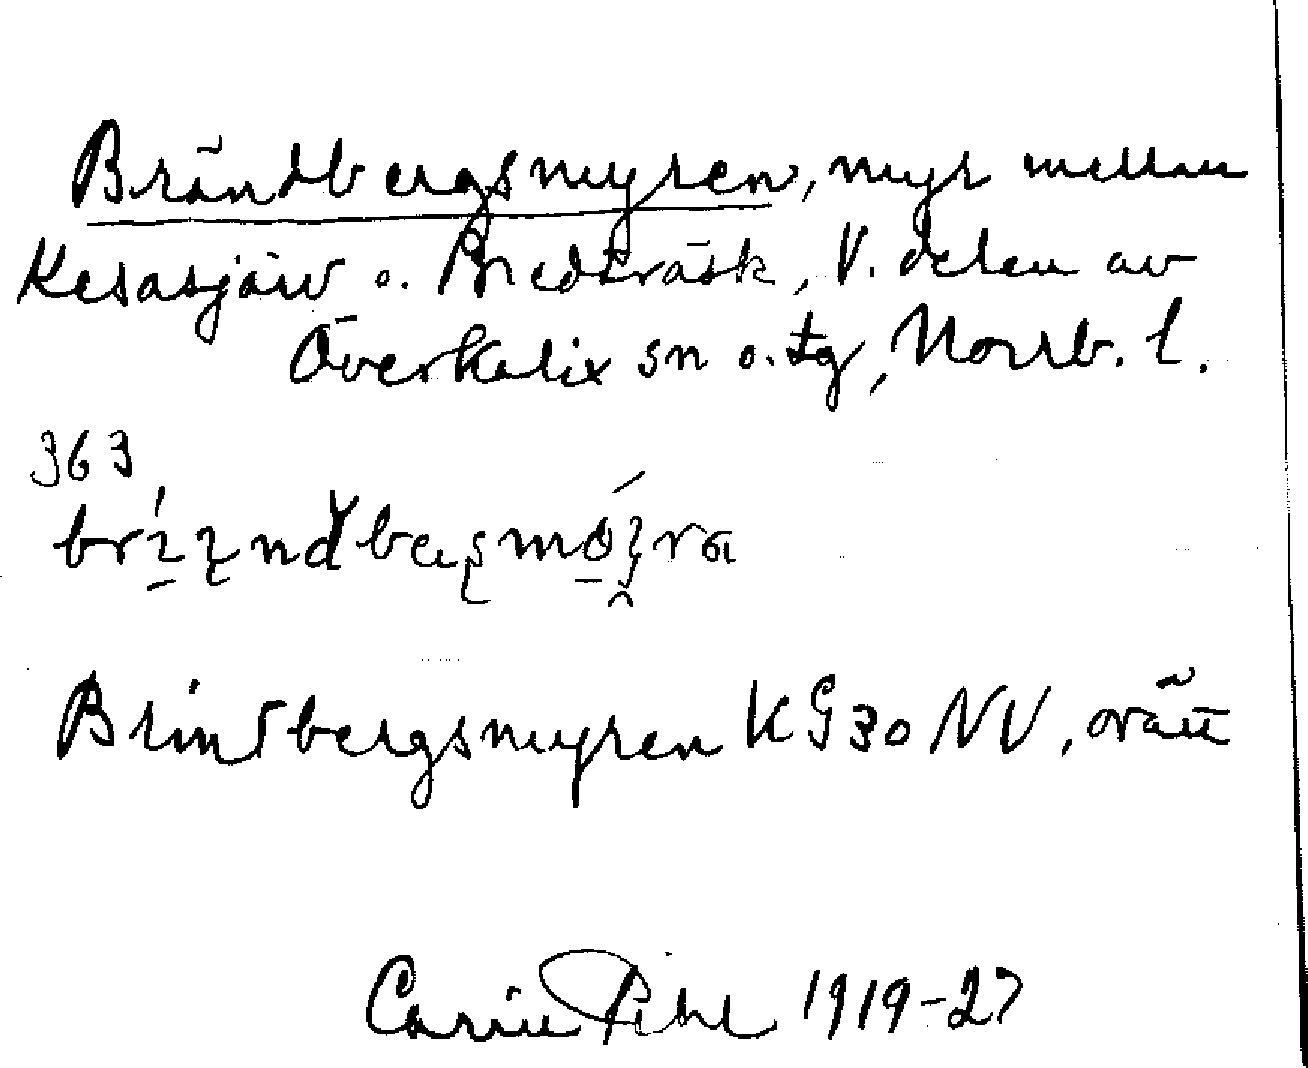 Brändbergsmyren, myr mellan
Kesasjärv o. Bredträsk, V. delen av
Överkalix sn o. tg, Norrb. l.
363
Brindbergsmyren KG30 NV, orätt
Carin Pihl 1919-27